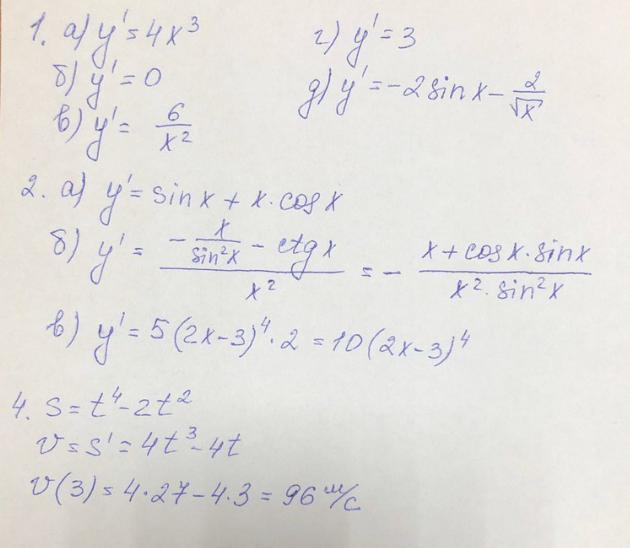 1. а) y' = 4x³
б) y' = 0
в) y' = 6/x²
г) y' = 3
д) y' = -2 sin x - 2/√x
2. а) y' = sin x + x · cos x
б) y' = (- x/sin²x - ctg x)/x² = - (x + cos x · sin x)/(x² · sin²x)
в) y' = 5(2x-3)⁴ · 2 = 10(2x-3)⁴
4. S = t⁴ - 2t²
v = s' = 4t³ - 4t
v(3) = 4·27 - 4·3 = 96 м/с